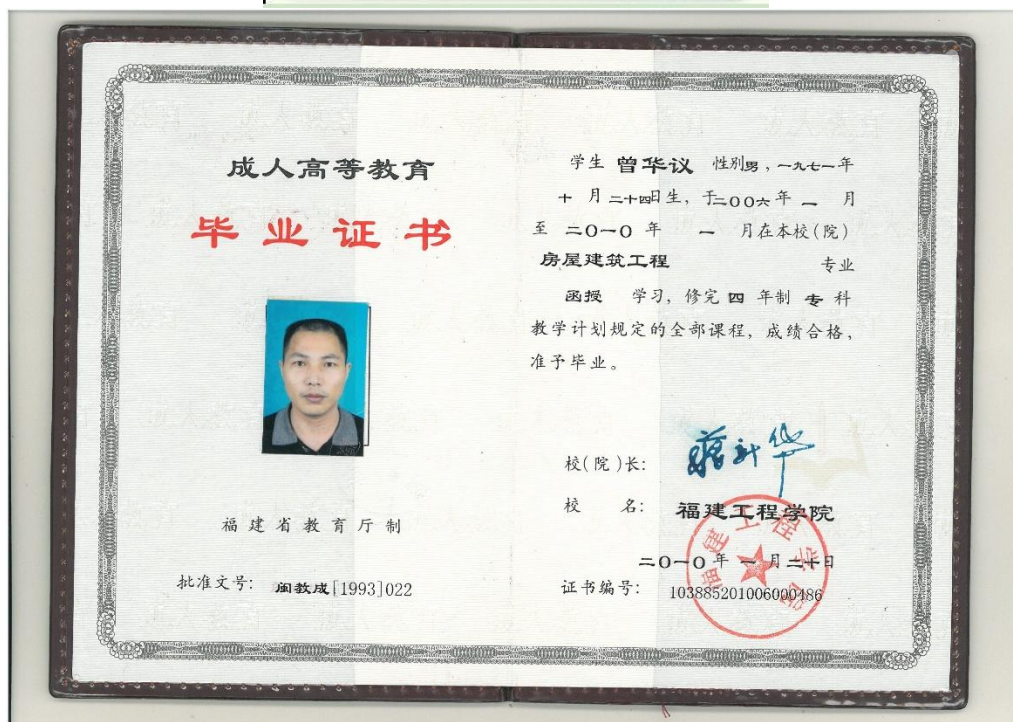 成人高等教育
毕业证书
福建省教育厅制
批准文号: 闽教成[1993]022
学生 曾华议 性别男,一九七一年
十月二十四日生,于二00六年一月
至二0一0年一月在本校(院)
房屋建筑工程 专业
函授 学习,修完四年制专科
教学计划规定的全部课程,成绩合格,
准予毕业。
校(院)长:
校名: 福建工程学院
二0一0年一月二十日
证书编号: 103885201006000486
福建工程学院